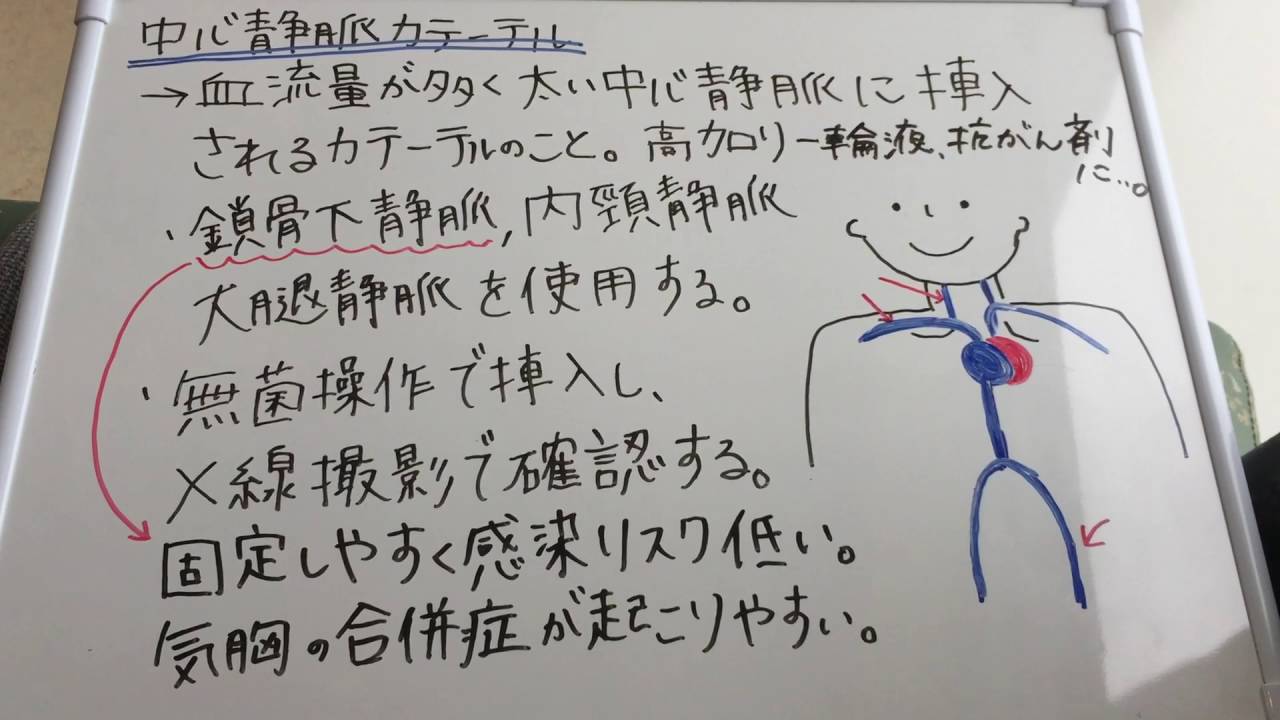 中心静脈カテーテル
→血流量が多く太い中心静脈に挿入
されるカテーテルのこと。高カロリー輪液、抗がん剤
に…。
・鎖骨下静脈,内頸静脈
大腿静脈を使用する。
・無菌操作で挿入し、
X線撮影で確認する。
固定しやすく感染リスク低い。
気胸の合併症が起こりやすい。